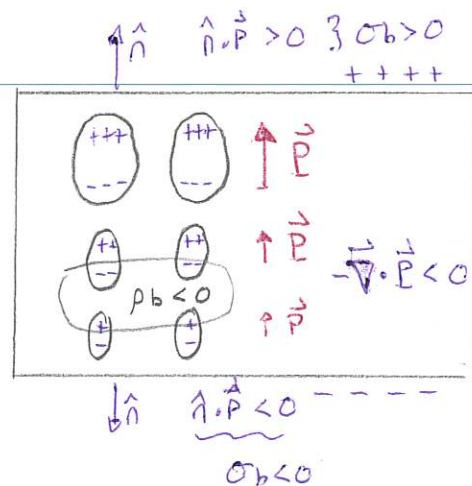 n̂ n̂·P⃗ > 0 } σb > 0
+ + + +
+++ +++ P⃗
--- ---
++ ++ P⃗
-- -- -∇⃗·P⃗ < 0
ρb < 0
+ + P⃗
- -
n̂ n̂·P⃗ < 0 - - - -
σb < 0